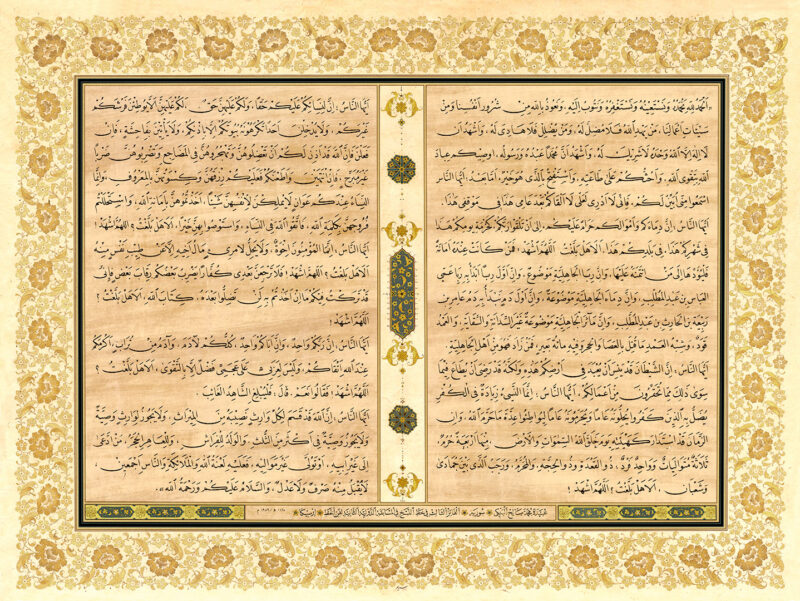 «الحمد لله نحمده ونستعينه ونستغفره ونتوب إليه، ونعوذ بالله من شرور أنفسنا ومن
سيئات أعمالنا، من يهد الله فلا مضل له، ومن يضلل فلا هادي له، وأشهد أن
لا إله إلا الله وحده لا شريك له، وأشهد أن محمدا عبده ورسوله، أوصيكم عباد
الله بتقوى الله، وأحثكم على طاعته، وأستفتح بالذي هو خير، أما بعد: أيها الناس
اسمعوا مني أبين لكم، فإني لا أدري لعلي لا ألقاكم بعد عامي هذا في موقفي هذا.
أيها الناس: إن دماءكم وأموالكم حرام عليكم، إلى أن تلقوا ربكم كحرمة يومكم هذا
في شهركم هذا، في بلدكم هذا، ألا هل بلغت اللهم اشهد، فمن كانت عنده أمانة
فليؤدها إلى من ائتمنه عليها، وإن ربا الجاهلية موضوع، وإن أول ربا أبدأ به ربا عمي
العباس بن عبد المطلب، وإن دماء الجاهلية موضوعة، وإن أول دم نبدأ به دم عامر بن
ربيعة بن الحارث بن عبد المطلب، وإن مآثر الجاهلية موضوعة غير السدانة والسقاية، والعمد
قود، وشبه العمد ما قتل بالعصا والحجر وفيه مائة بعير، فمن زاد فهو من أهل الجاهلية.
أيها الناس: إن الشيطان قد يئس أن يعبد في أرضكم هذه ولكنه قد رضي أن يطاع فيما
سوى ذلك مما تحقرون من أعمالكم. أيها الناس: إنما النسيء زيادة في الكفر
يضل به الذين كفروا يحلونه عاما ويحرمونه عاما ليواطئوا عدة ما حرم الله، وإن
الزمان قد استدار كهيئته يوم خلق الله السموات والأرض، منها أربعة حرم:
ثلاثة متواليات وواحد فرد، ذو القعدة وذو الحجة والمحرم، ورجب الذي بين جمادى
وشعبان، ألا هل بلغت؟ اللهم اشهد!
أيها الناس: إن لنسائكم عليكم حقا، ولكم عليهن حق، لكم عليهن ألا يوطئن فرشكم
غيركم، ولا يدخلن أحدا تكرهونه بيوتكم إلا بإذنكم، ولا يأتين بفاحشة، فإن
فعلن فإن الله قد أذن لكم أن تعضلوهن وتهجروهن في المضاجع وتضربوهن ضربا
غير مبرح، فإن انتهين وأطعنكم فعليكم رزقهن وكسوتهن بالمعروف، وإنما
النساء عندكم عوان لا يملكن لأنفسهن شيئا، أخذتموهن بأمانة الله، واستحللتم
فروجهن بكلمة الله، فاتقوا الله في النساء، واستوصوا بهن خيرا، ألا هل بلغت؟ اللهم اشهد!
أيها الناس: إنما المؤمنون إخوة، ولا يحل لامرئ مال أخيه إلا عن طيب نفس منه
ألا هل بلغت؟ اللهم اشهد! فلا ترجعن بعدي كفارا يضرب بعضكم رقاب بعض فإني
قد تركت فيكم ما إن أخذتم به لن تضلوا بعده، كتاب الله، ألا هل بلغت؟
اللهم اشهد!
أيها الناس: إن ربكم واحد، وإن أباكم واحد، كلكم لآدم، وآدم من تراب، أكرمكم
عند الله أتقاكم، وليس لعربي على عجمي فضل إلا بالتقوى، ألا هل بلغت؟
اللهم اشهد! فقالوا نعم. قال: فليبلغ الشاهد الغائب.
أيها الناس: إن الله قد قسم لكل وارث نصيبه من الميراث، ولا يجوز لوارث وصية
ولا يجوز وصية في أكثر من الثلث، والولد للفراش، وللعاهر الحجر، من ادعى
إلى غير أبيه، أو تولى غير مواليه، فعليه لعنة الله والملائكة والناس أجمعين،
لا يقبل منه صرف ولا عدل، والسلام عليكم ورحمة الله».
محمد صالح سورية الفائز الثالث في خط النسخ في المسابقة الدولية الثانية لفن الخط إرسيكا